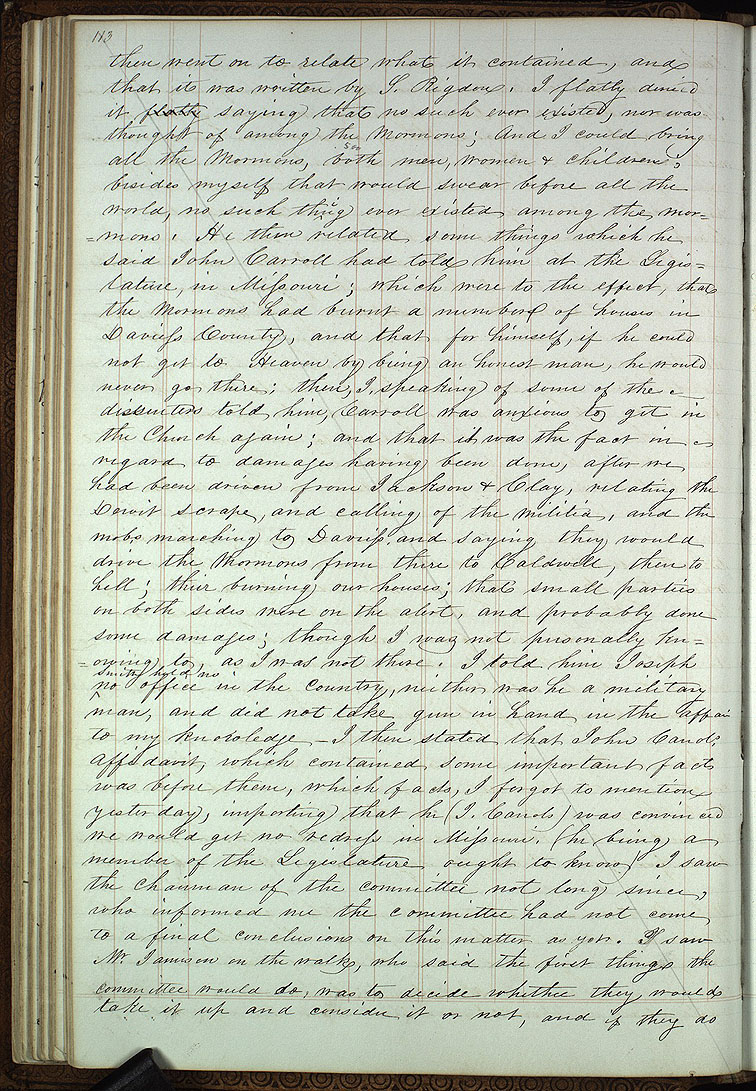 113
then went on to relate what it contained, and
that it was written by S. Rigdon. I flatly denied
it flatly saying that no such ever existed, nor was
thought of among the Mormons; And I could bring
all the Mormons, both men, women & children;
besides myself that would swear before all the
world, no such thing ever existed among the mor=
=mons. He then related some things which he
said John Carroll had told him at the Legis=
lature, in Missouri; which were to the effect, that
the Mormons had burnt a number of houses in
Daviess County, and that for himself, if he could
not get to Heaven by being an honest man, he would
never go there; then, I, speaking of some of the
dissenters told him, Carroll was anxious to get in
the Church again; and that it was the fact in
regard to damages having been done, after we
had been driven from Jackson & Clay, relating the
Dewit scrape, and calling of the militia, and the
mobs marching to Daviess, and saying they would
drive the Mormons from there to Caldwell, then to
hell; their burning our houses; that small parties
on both sides were on the alert, and probably done
some damages; though I was not personally kn=
=owing to, as I was not there. I told him Joseph
Smith held no
no office in the Country, neither was he a military
man, and did not take gun in hand in the affair
to my knowledge – I then stated that John Carrols
Affidavit, which contained some important facts
was before them, which facts, I forgot to mention
yesterday, importing that he (J. Carrols) was convinced
we would get no redress in Missouri. (he being a
member of the Legislature ought to know) I saw
the chairman of the committee not long since,
who informed me the committee had not come
to a final conclusions on this matter as yet. I saw
Mr. Jamison on the walk, who said the first things the
committee would do, was to decide whether they would
take it up and consider it or not, and if they do